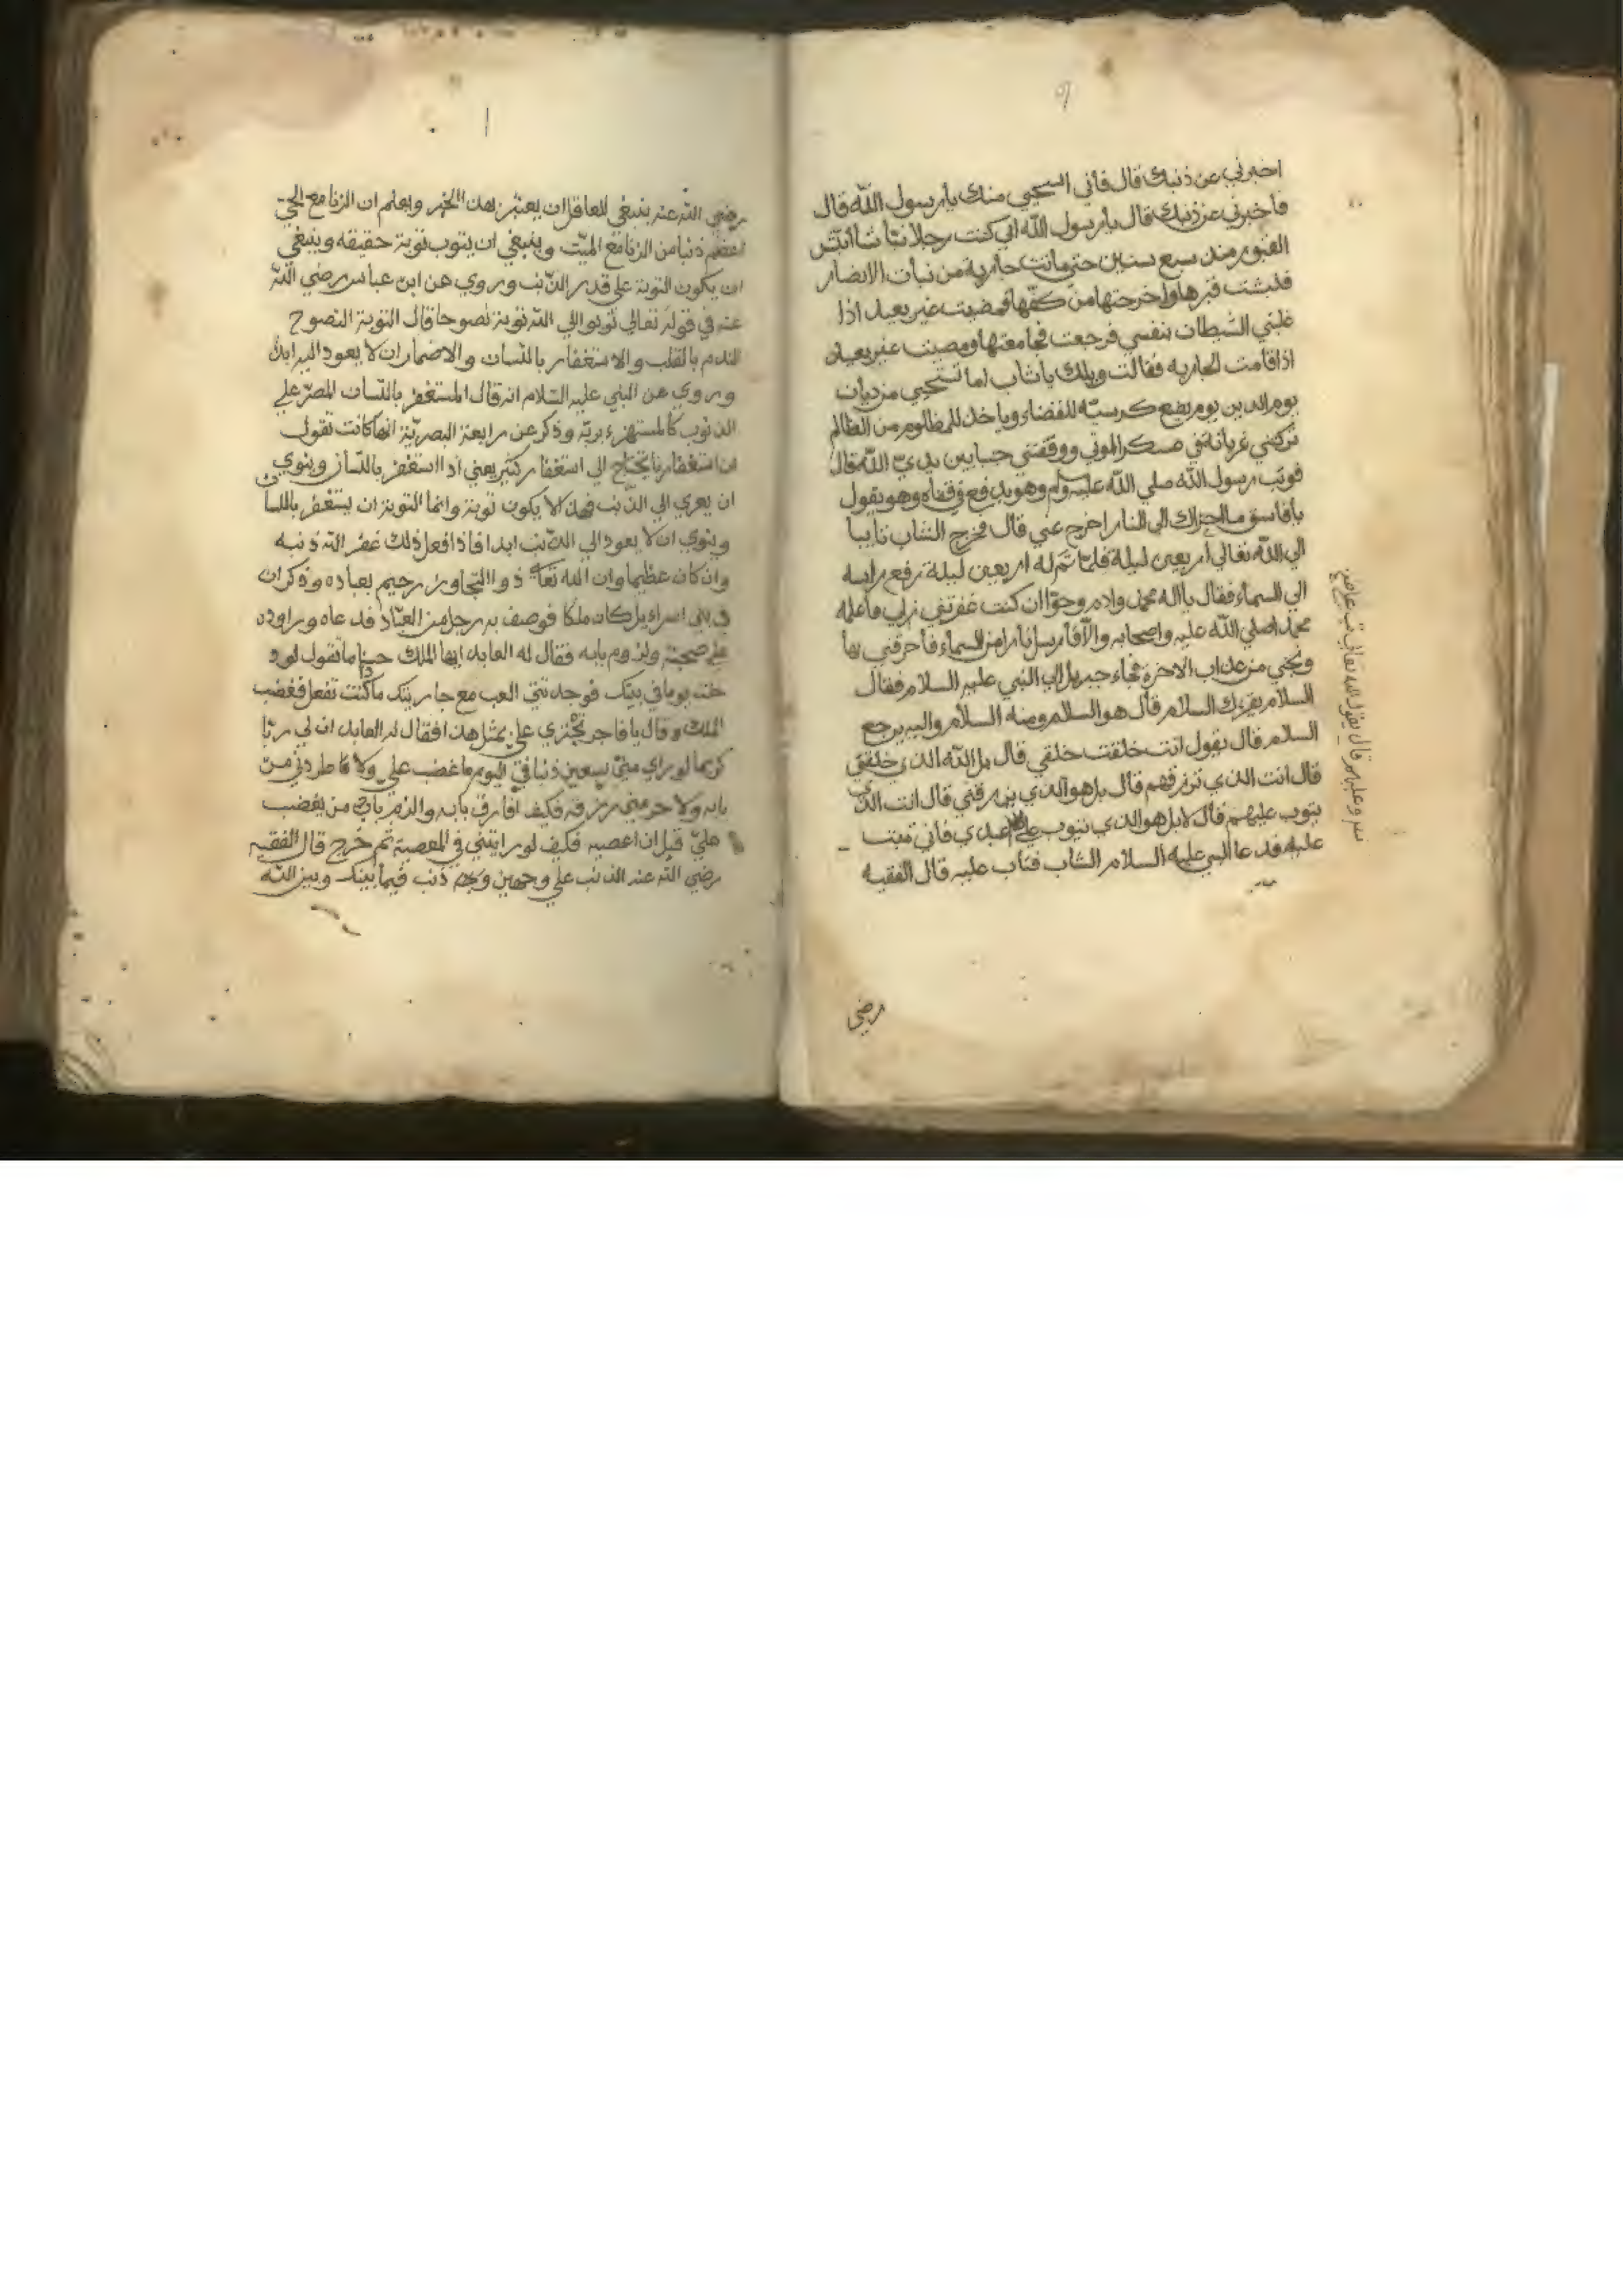 اخبرني عن ذنبك قال فأني استحيي منك يا رسول الله قال
فأخبرني عن ذنبك قال يا رسول الله اني كنت رجلا نباشا انبش
القبور منذ سبع سنين حتي ماتت جارية من نبات الانصار
فنبشت قبرها واخرجتها من كفنها فمضيت غير بعيد اذا
غلبني الشيطان بنفسي فرجعت فجامعتها ومضيت غير بعيد
اذا قامت الجاريه فقالت ويلك يا شاب اما تستحيي من ديان
يوم الدين يوم يضع كرسيه للقضاء وياخذ للمظلوم من الظالم
تركتني عريانة في عسكر الموتي ووقفتني جنبا بين يدي الله قال
فوثب رسول الله صلي الله عليه وسلم وهو يدفع في قفاه وهو يقول
يا فاسق ما اجزاك الي النار اخرج عني قال فخرج الشاب تايبا
الي الله تعالي اربعين ليلة فلما تم له اربعين ليلة رفع راسه
الي السماء فقال يا اله محمد وادم وحوا ان كنت غفرتني زلي فأعلم
محمدا صلي الله عليه واصحابه والآ فأرسل نارا من السماء فأحرقني بها
ونجني من عذاب الاخرة فجاء جبريل الي النبي عليه السلام فقال
السلام يقريك السلام قال هو السلام ومنه السلام واليه يرجع
السلام قال يقول انت خلقت خلقي قال بل الله الذي خلقني
قال انت الذي ترزقهم قال بل هو الذي يرزقني قال انت الذي
يتوب عليهم قال لا بل هو الذي يتوب علي عبدي فأني تبت
عليه فدعا النبي عليه السلام الشاب فتاب عليه قال الفقيه
رضي
رضي الله عنه ينبغي للعاقل ان يعتبر بهذا الخبر ويعلم ان الزنا مع الحي
اعظم ذنبا من الزنا مع الميت وينبغي ان يتوب توبة حقيقه وينبغي
ان يكون التوبة علي قدر الذنب وروي عن ابن عباس رضي الله
عنه في قوله تعالي توبوا الي الله توبة نصوحا قال التوبة النصوح
الندم بالقلب والاستغفار باللسان والاضمار ان لا يعود اليه ابدا
وروي عن النبي عليه السلام انه قال المستغفر باللسان المصر علي
الذنوب كالمستهزء بربه وذكر عن رابعة البصرية انها كانت تقول
ان استغفارنا يحتاج الي استغفار كثير يعني اذا استغفر باللسان وينوي
ان يعري الي الذنب فهذا لا يكون توبة وانما التوبة ان يستغفر باللسان
وينوي ان لا يعود الي الذنب ابدا فاذا فعل ذلك غفر الله ذنبه
وان كان عظيما وان الله تعا ذو التجاوز رحيم بعباده وذكر ان
في بني اسراءيل كان ملكا فوصف به رجل من العباد فدعاه وراوده
علي صحبته ولزوم بابه فقال له العابد ايها الملك حسنا ما تقول لو د
خلت يوما في بيتك فوجدتني العب مع جاريتك ما كنت تفعل فغضب
الملك وقال يا فاجر تجتري علي بمثل هذا فقال له العابد ان لي ربا
كريما لو راي مني سبعين ذنبا في اليوم ما غضب علي ولا طردني من
بابه ولا حرمني رزقه فكيف افارق بابه والزم باب من يغضب
علي قبل ان اعصيه فكيف لو رايتني في المعصية ثم خرج قال الفقيه
رضي الله عنه الذنب علي وجهين ذنب فيما بينك وبين الله